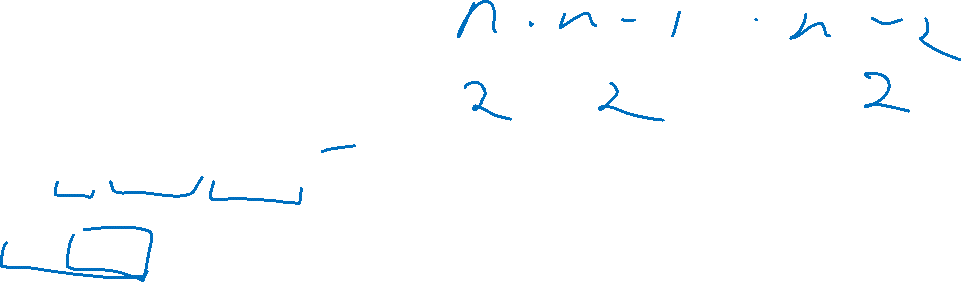 n · n - 1 · n - 2
2 2 2